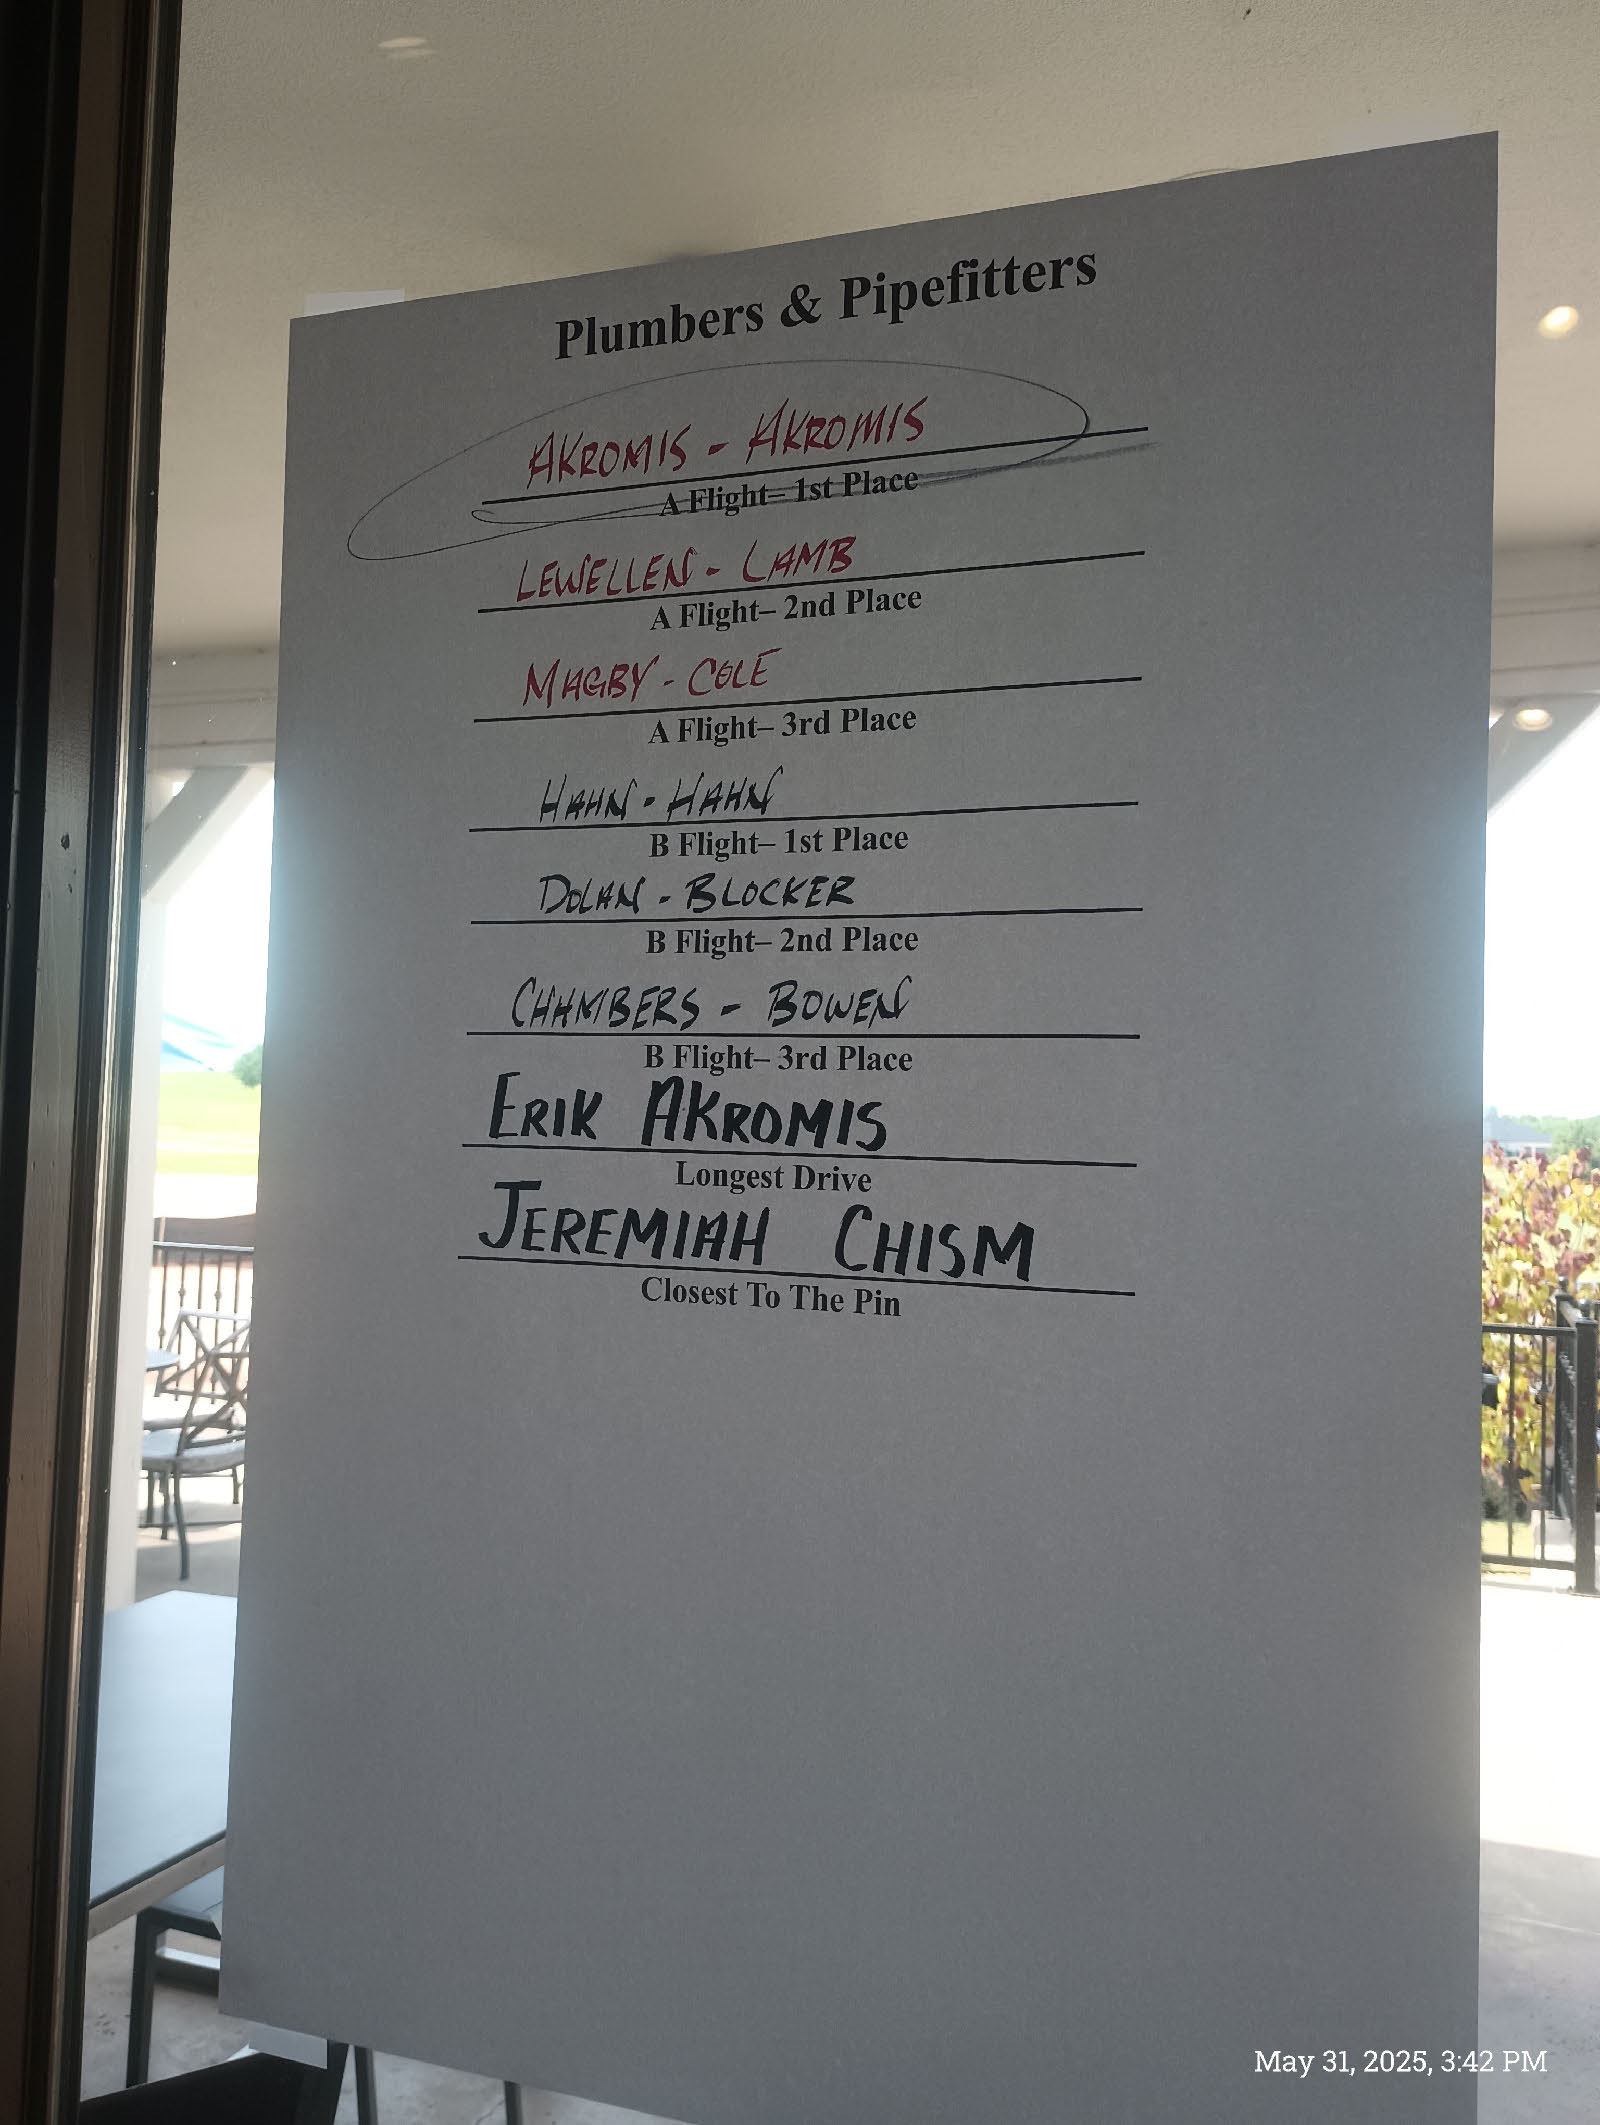 Plumbers & Pipefitters
AKROMIS - AKROMIS
A Flight– 1st Place
LEWELLEN - LAMB
A Flight– 2nd Place
MAGBY - COLE
A Flight– 3rd Place
HAHN - HAHN
B Flight– 1st Place
DOLAN - BLOCKER
B Flight– 2nd Place
CHAMBERS - BOWEN
B Flight– 3rd Place
ERIK AKROMIS
Longest Drive
JEREMIAH CHISM
Closest To The Pin
May 31, 2025, 3:42 PM